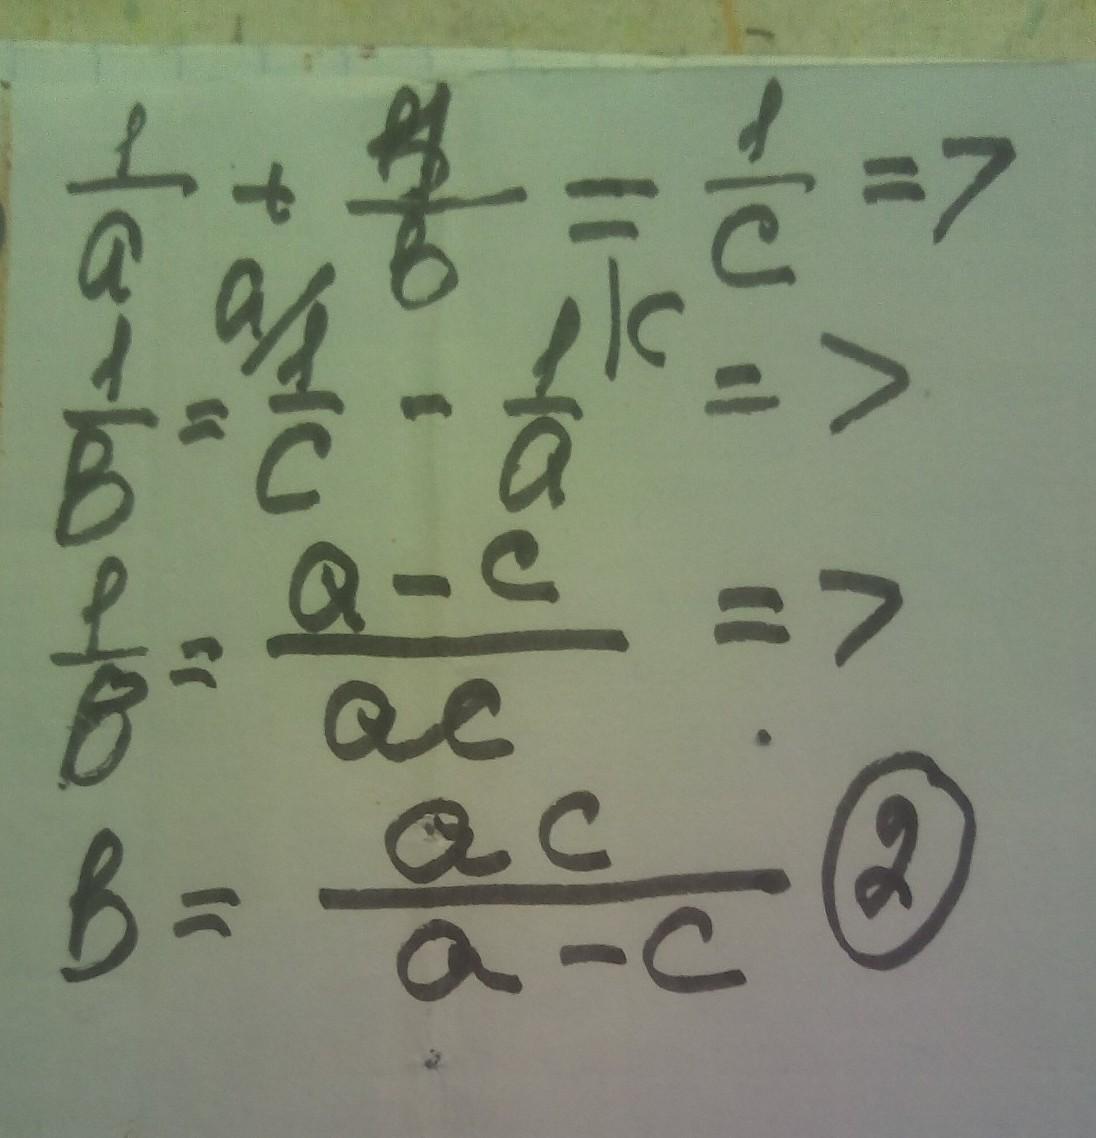 1/a + 1/b = 1/c =>
1/B = a/ 1/c - 1/a |c =>
1/B = (a - c)/(ac) =>
B = (ac)/(a - c) 2